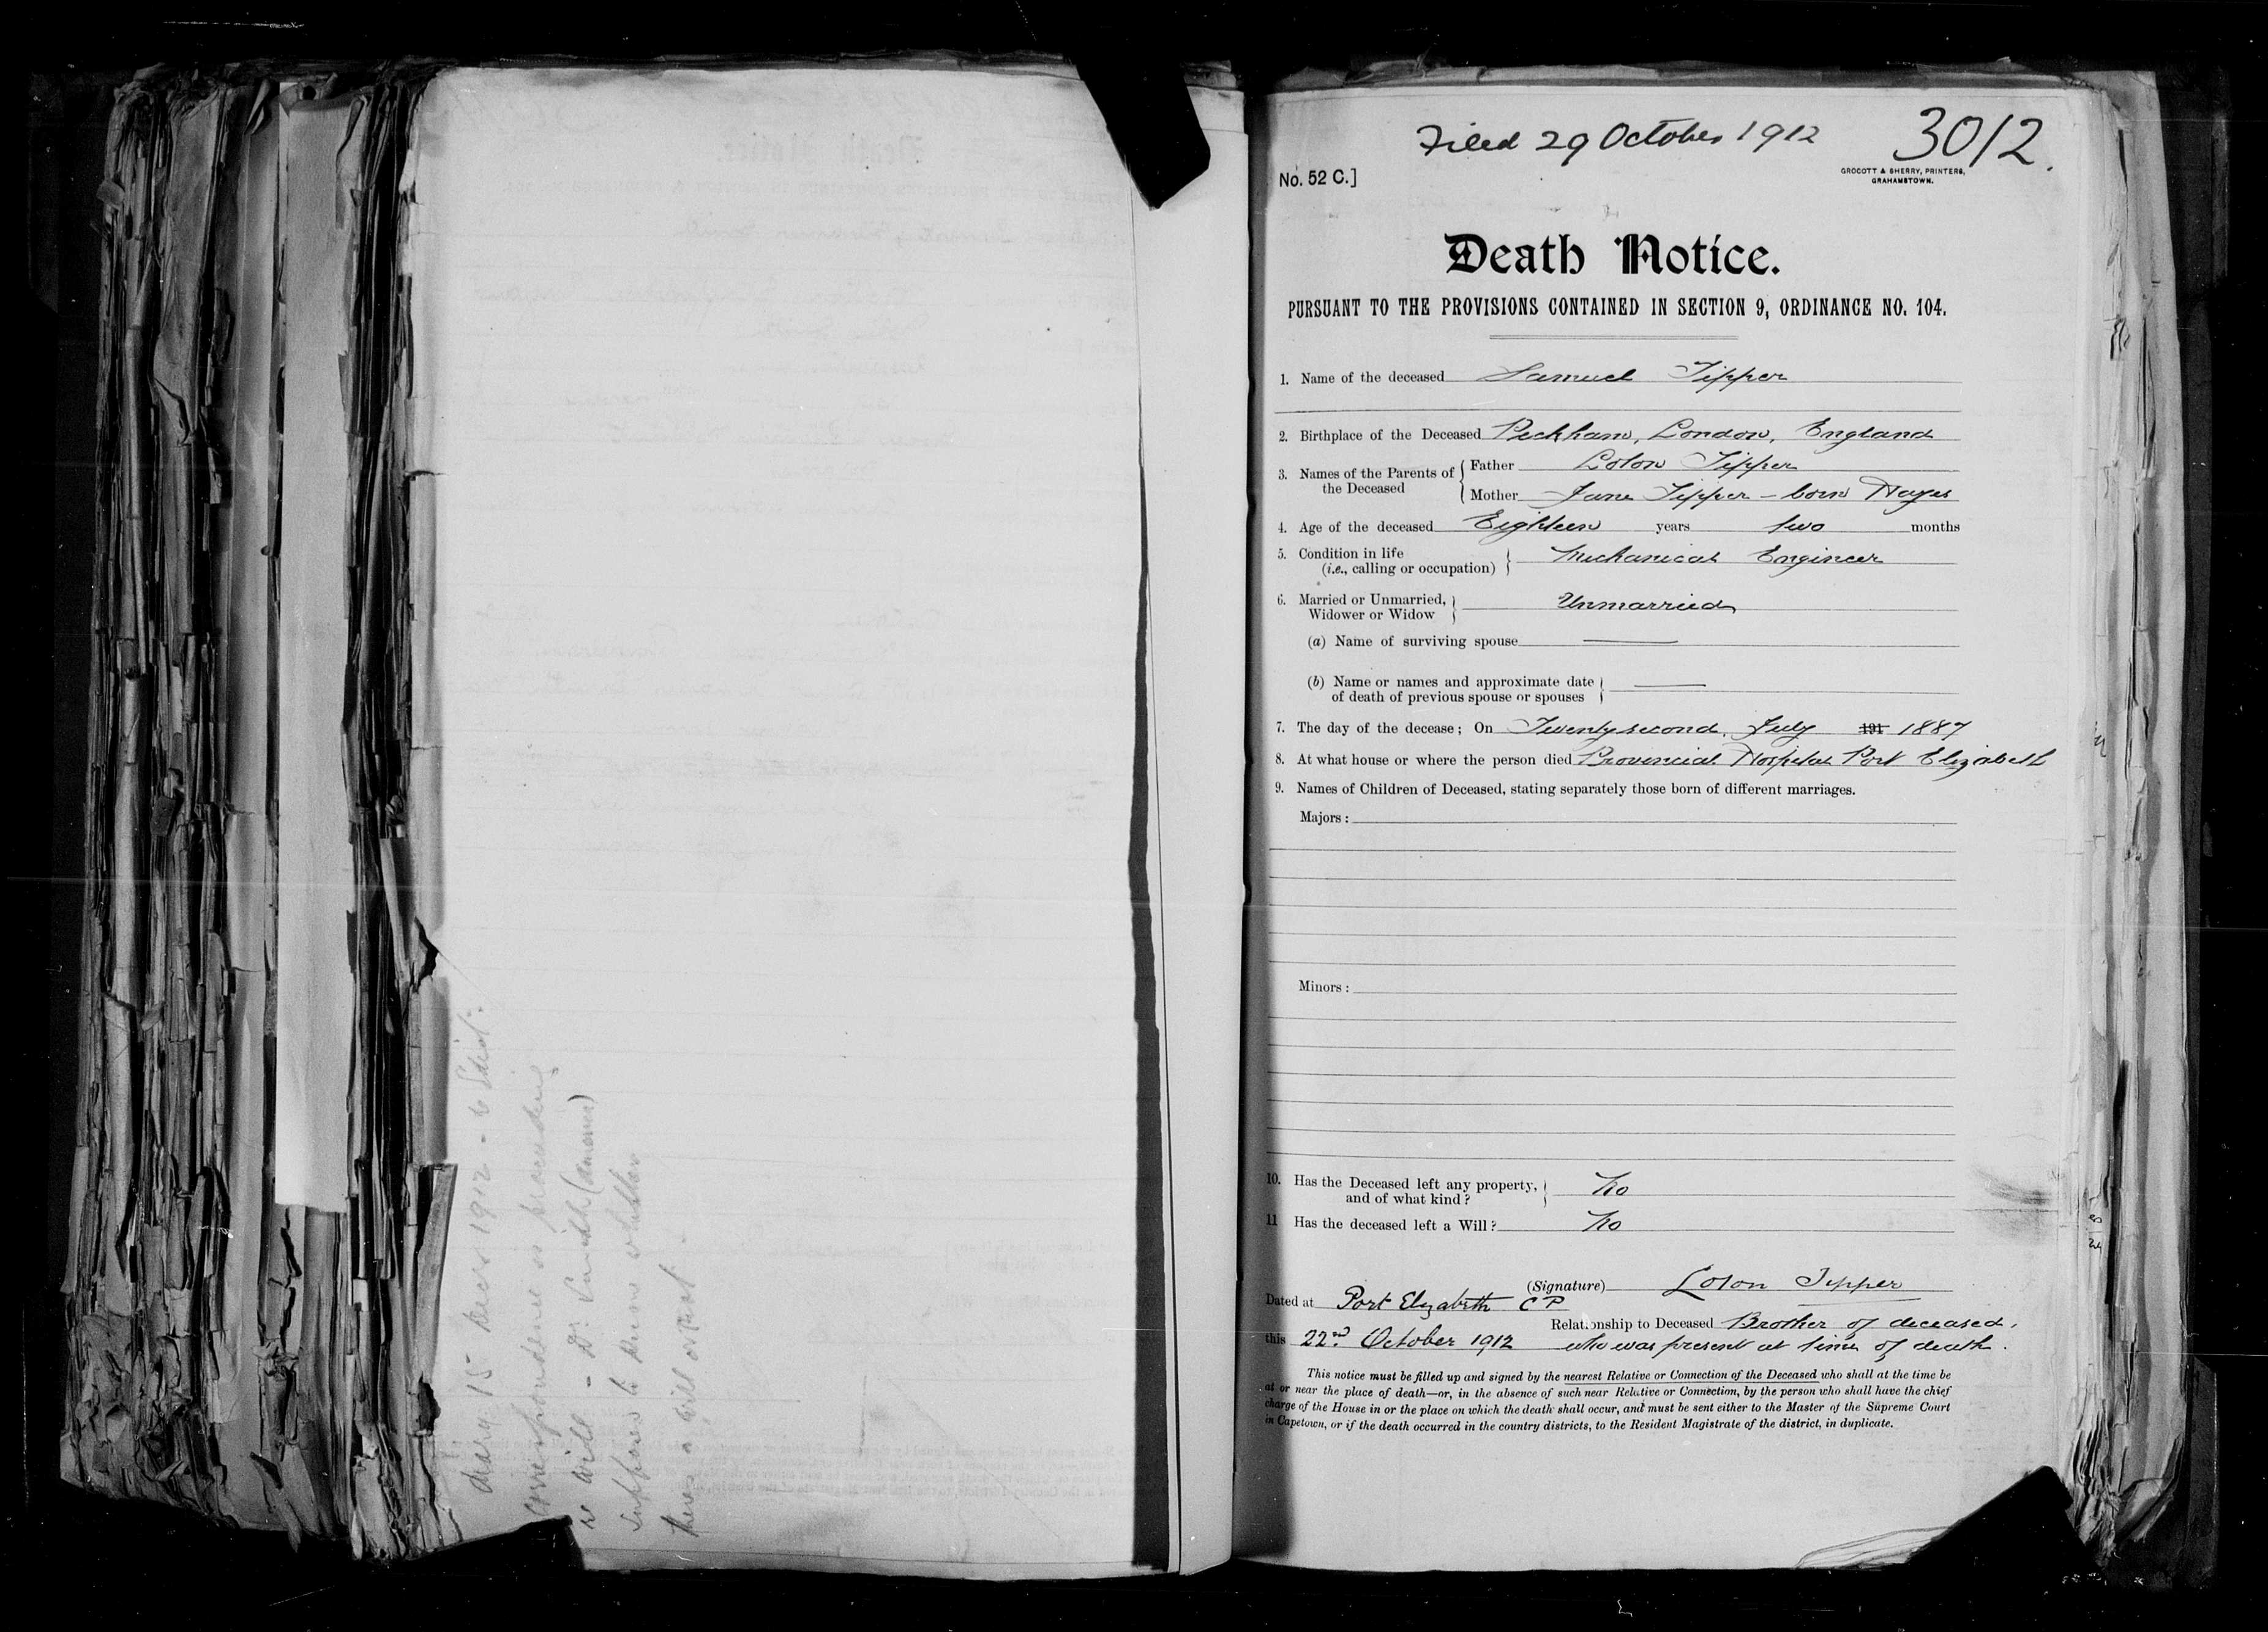 Diary 15 Decr 1912
correspondence as preceding
supposed to know whether
there is a will or not.
Filed 29 October 1912
3012.
No. 52 C.]
GROCOTT & SHERRY, PRINTERS,
GRAHAMSTOWN.
Death Notice.
PURSUANT TO THE PROVISIONS CONTAINED IN SECTION 9, ORDINANCE NO. 104.
1. Name of the deceased Samuel Tipper
2. Birthplace of the Deceased Peckham, London, England
3. Names of the Parents of the Deceased { Father Loton Tipper
Mother Jane Tipper – born Hayes
4. Age of the deceased Eighteen years two months
5. Condition in life
(i.e., calling or occupation) } Mechanical Engineer
6. Married or Unmarried,
Widower or Widow } Unmarried
(a) Name of surviving spouse —
(b) Name or names and approximate date
of death of previous spouse or spouses } —
7. The day of the decease; On Twenty second, July 191 1887
8. At what house or where the person died Provincial Hospital Port Elizabeth
9. Names of Children of Deceased, stating separately those born of different marriages.
Majors :
Minors :
10. Has the Deceased left any property,
and of what kind? } No
11 Has the deceased left a Will? No
(Signature) Loton Tipper
Dated at Port Elizabeth C P
Relationship to Deceased Brother of deceased,
this 22nd October 1912 who was present at time of death.
This notice must be filled up and signed by the nearest Relative or Connection of the Deceased who shall at the time be
at or near the place of death—or, in the absence of such near Relative or Connection, by the person who shall have the chief
charge of the House in or the place on which the death shall occur, and must be sent either to the Master of the Supreme Court
in Capetown, or if the death occurred in the country districts, to the Resident Magistrate of the district, in duplicate.